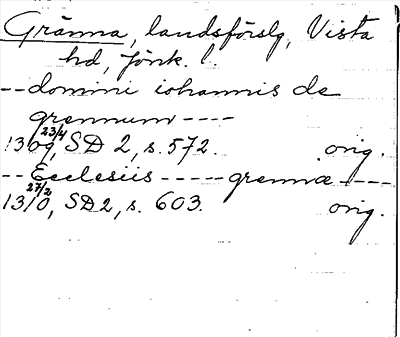 Gränna, landsförslg, Vista
hd, Jönk. l.
-- domini iohannis de
grennum ----
1309 23/4, SD 2, s. 572. orig.
-- Ecclesiis ----- grennæ ----
1310 27/2, SD 2, s. 603. orig.